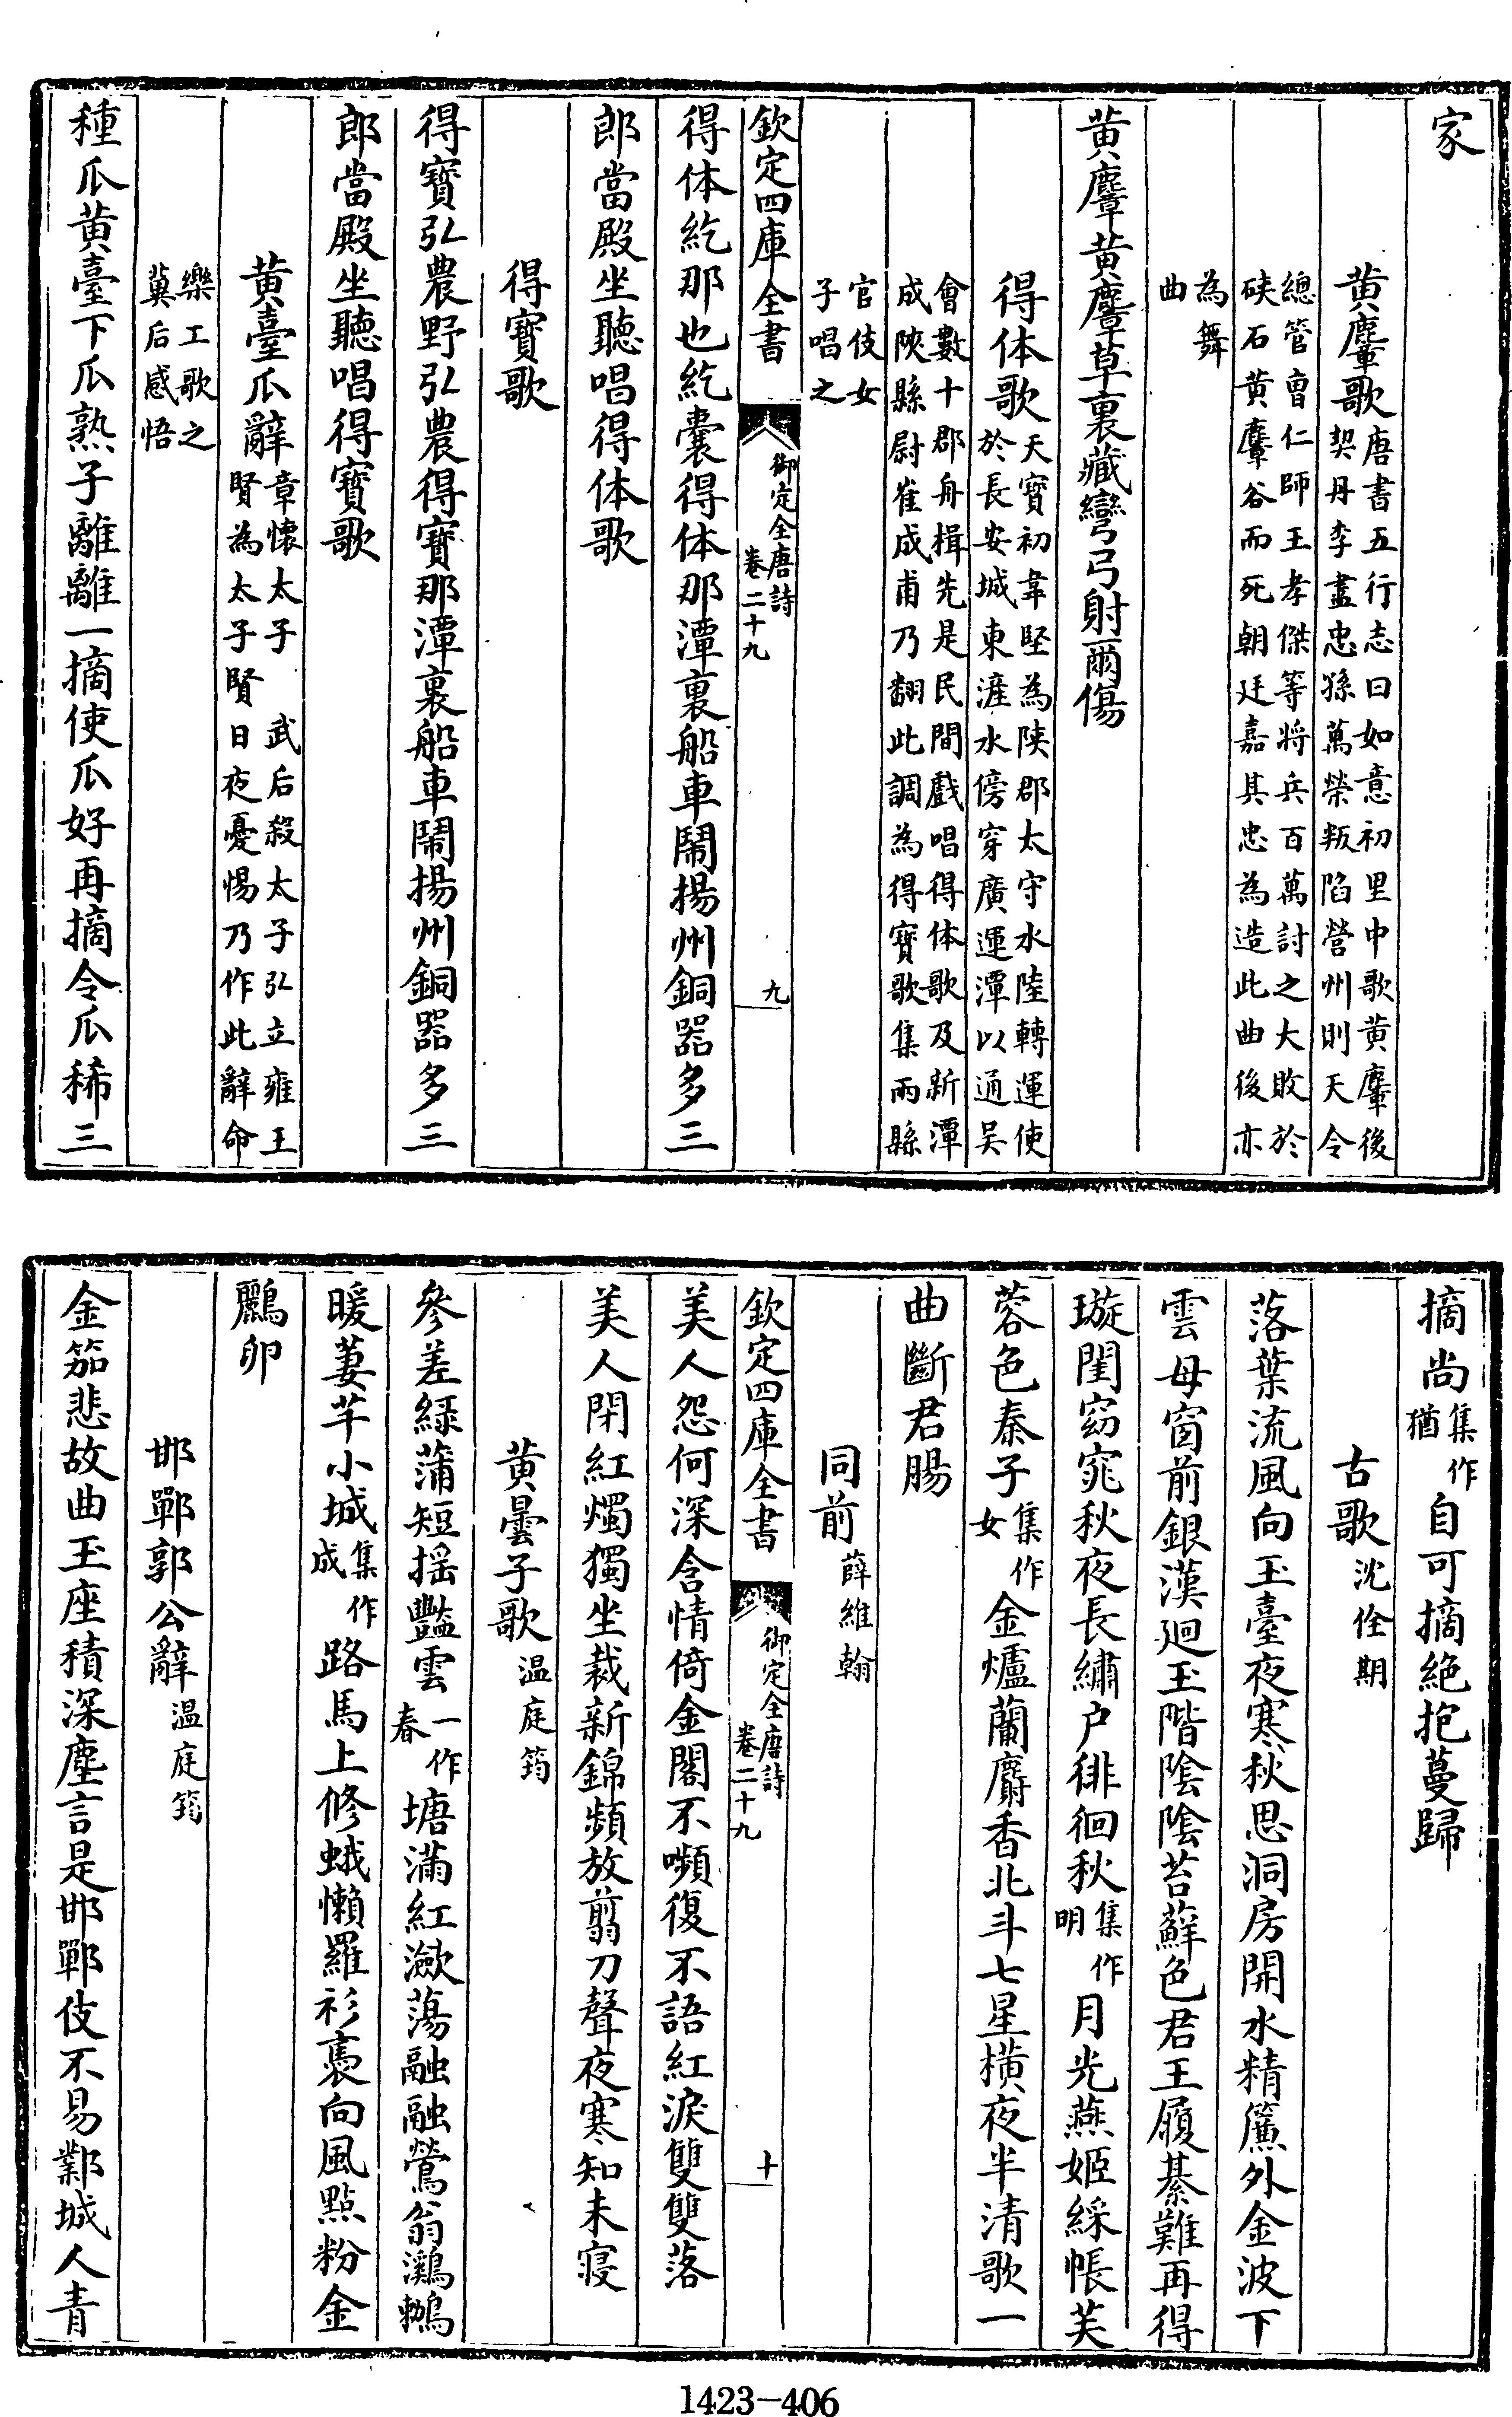 家
黄麞歌唐書五行志曰如意初里中歌黄麞後
契丹李盡忠孫萬榮叛陷營州則天令
總管曹仁師王孝傑等將兵百萬討之大敗於
硤石黄麞谷而死朝廷嘉其忠為造此曲後亦
為舞
曲
黄麞黄麞草裏藏彎弓射爾傷
得体歌天寶初韋堅為陜郡太守水陸轉運使
於長安城東滻水傍穿廣運潭以通吳
會數十郡舟楫先是民間戲唱得体歌及新潭
成陜縣尉崔成甫乃翻此調為得寶歌集兩縣
官伎女
子唱之
欽定四庫全書
御定全唐詩
卷二十九
九
得体紇那也紇囊得体那潭裏船車鬧揚州銅器多三
郎當殿坐聽唱得体歌
得寶歌
得寶弘農野弘農得寶那潭裏船車鬧揚州銅器多三
郎當殿坐聽唱得寶歌
黄臺瓜辭章懷太子 武后殺太子弘立雍王
賢為太子賢日夜憂惕乃作此辭命
樂工歌之
冀后感悟
種瓜黄臺下瓜熟子離離一摘使瓜好再摘令瓜稀三
摘尚集作
猶自可摘絶抱蔓歸
古歌沈佺期
落葉流風向玉臺夜寒秋思洞房開水精簾外金波下
雲母窗前銀漢廻玉階陰陰苔蘚色君王履綦難再得
璇閨窈窕秋夜長繡户徘徊秋集作
明月光燕姬綵帳芙
蓉色秦子集作
女金爐蘭麝香北斗七星橫夜半清歌一
曲斷君腸
同前薛維翰
欽定四庫全書
御定全唐詩
卷二十九
十
美人怨何深含情倚金閣不嚬復不語紅淚雙雙落
美人閉紅燭獨坐裁新錦頻放翦刀聲夜寒知未寢
黄曇子歌温庭筠
參差綠蒲短揺豔雲一作
春塘滿紅瀲蕩融融鶯翁鸂鶒
暖萋芊小城集作
成路馬上修蛾懶羅衫裊向風點粉金
鸝卵
邯鄲郭公辭温庭筠
金笳悲故曲玉座積深塵言是邯鄲伎不易鄴城人青
1423-406